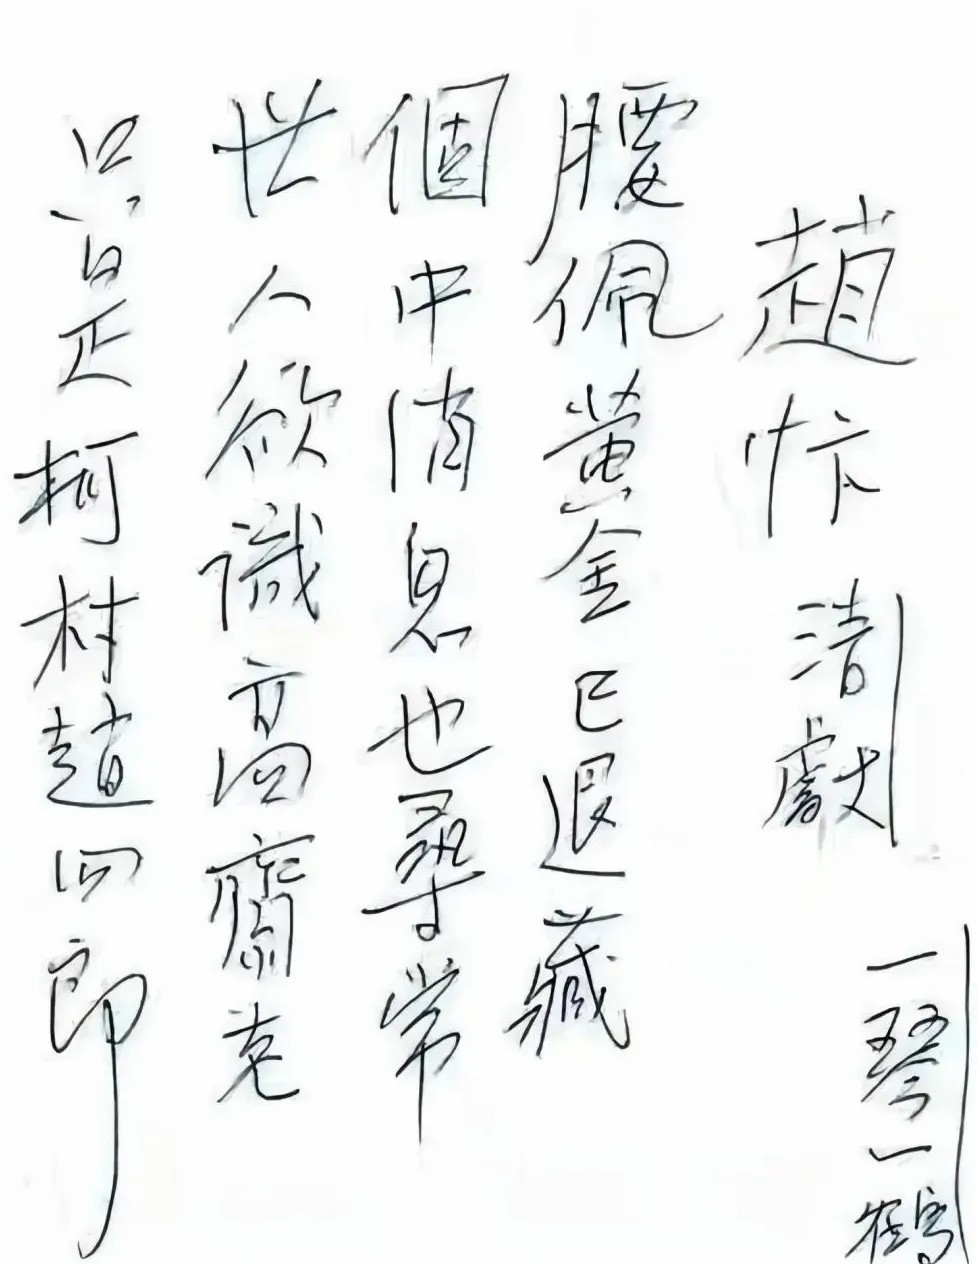 趙忭 清獻
一琴一鶴
腰佩黃金已退藏
個中消息也尋常
世人欲識高齋老
只是柯村趙四郎